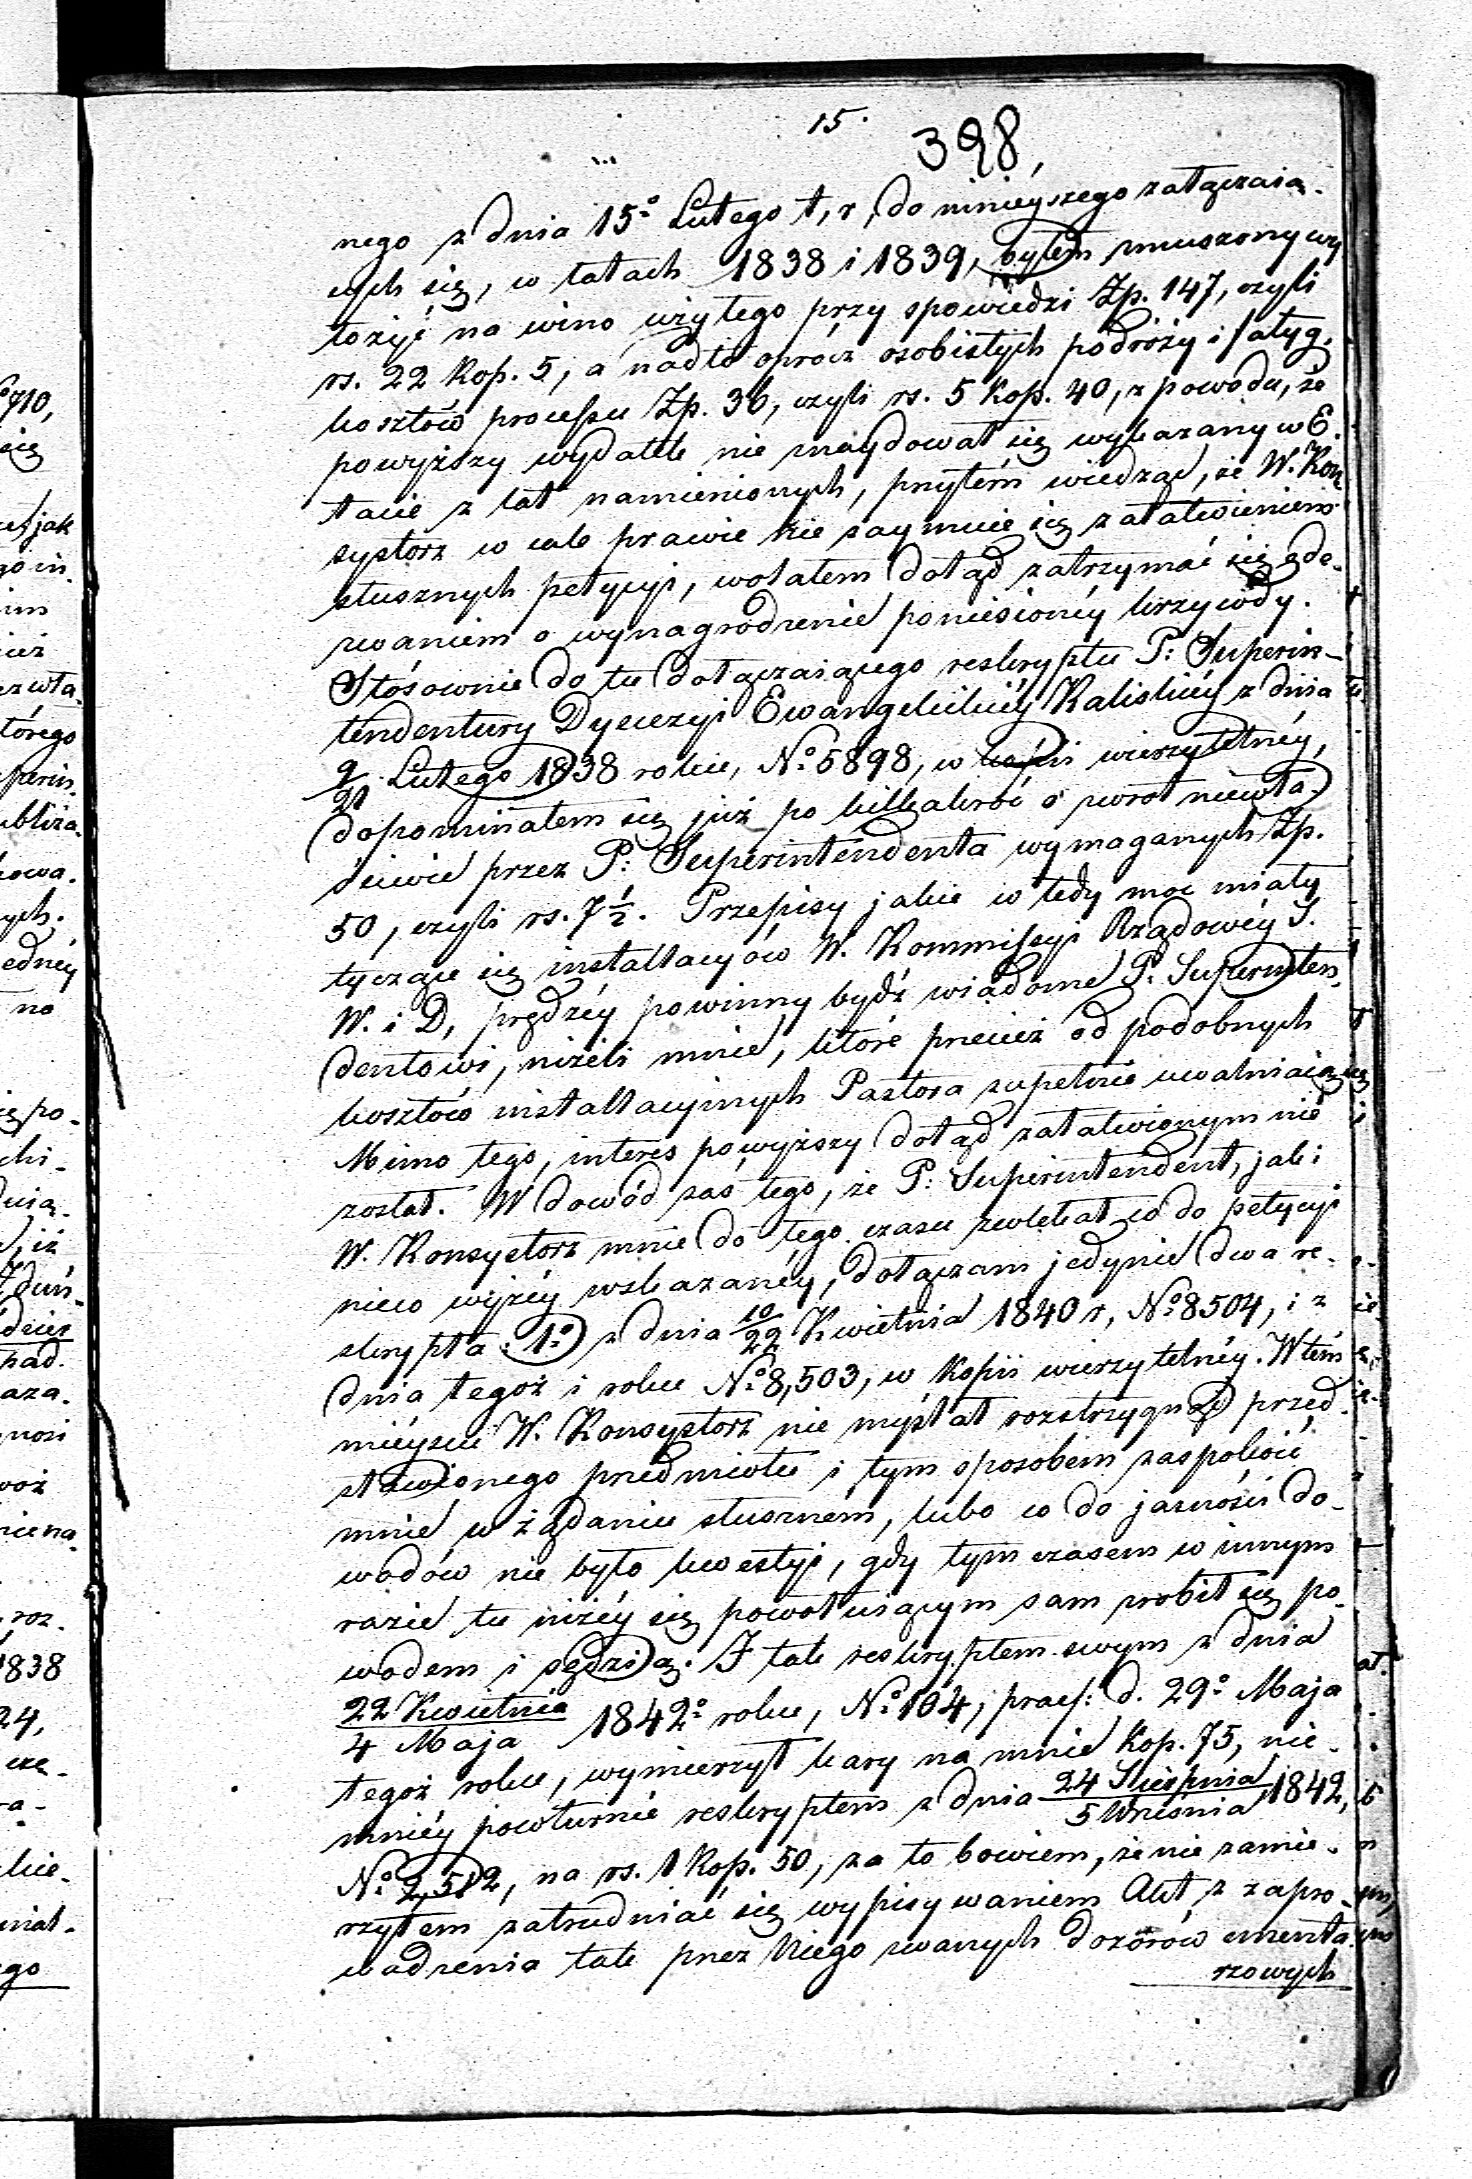 15.
398,
nego z dnia 15º Lutego t, r, do ninieyszego załączaią-
cych się, w latach 1838 i 1839, byłem zmuszony wy
łożyć na wino użytego przy spowiedzi Zp. 147, czyli
rs. 22 kop. 5, a nadto oprócz osobistych podróży i fatyg,
kosztów processu Zp. 36, czyli rs. 5 kop. 40, z powodu, że
powyższy wydatek nie znaydował się wykazany w E.
tacie z lat namienionych, przytém wiedząc, że W. Kon
systorz w cale prawie nie zaymuie się załatwieniem
słusznych petycyi, wolałem dotąd zatrzymać się z de-
zwaniem o wynagrodzenie poniesionéy krzywdy.
Stósownie do tu dołączaiącego reskryptu P: Superin-
tendentury Dyecezyi Ewangelickiéy Kaliskiéy z dnia
9/21 Lutego 1838 roku, Nº 5898, w kopii wierzytelnéy,
dopominałem się już po kilkakroć o zwrot niewła-
ściwie przez P: Superintendenta wymaganych Zp.
50, czyli rs. 7½. Przepisy jakie w tedy moc miały
tyczące się installacyów W. Kommissyi Rządowéy S.
W. i D, prędzéy powinny bydź wiadome P. Superinten-
dentowi, niżeli mnie, które przecież od podobnych
kosztów installacyinych Pastora zupełnie uwalniaią
Mimo tego, interes powyższy dotąd załatwionym nie
został. W dowód zaś tego, że P: Superintendent, jak i
W. Konsystorz mnie do tego czasu zwlekał co do petycyi
nieco wyżéy wskazanéy, dołączam jedynie dwa re-
skrypta: 1º z dnia 10/22 Kwietnia 1840 r, Nº 8504, i z
dnia tegoż i roku Nº 8,503, w kopii wierzytelnéy. W tém
mieyscu W. Konsystorz nie myślał rozstrzygnąć przed-
stawionego przedmiotu i tym sposobem zaspokoić
mnie w żądaniu słuszném, lubo co do jasności do-
wodów nie było kwestyi, gdy tymczasem w innym
razie tu niżéy się powołuiącym sam zrobił się po-
wodem i sędzią. I tak reskryptem swym z dnia
22 Kwietnia/4 Maja 1842º roku, Nº 104, praes: d. 29º Maja
tegoż roku, wymierzył kary na mnie kop. 75, nie-
mniéy powturnie reskryptem z dnia 24 Sierpnia/5 Wrzesnia 1842,
Nº 2,512, na rs. 1 kop. 50, za to bowiem, że nie zamie-
rzyłem zatrudniać się wypisywaniem Akt z zapro-
wadzenia tak przez Niego zwanych dozorów cmenta-
rzowych